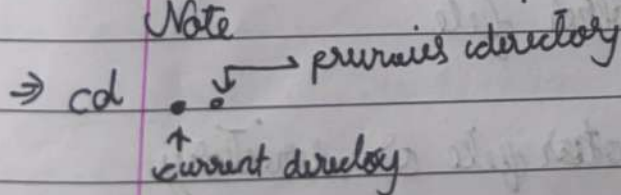 Note
previous directory
⇒ cd ..
current directory